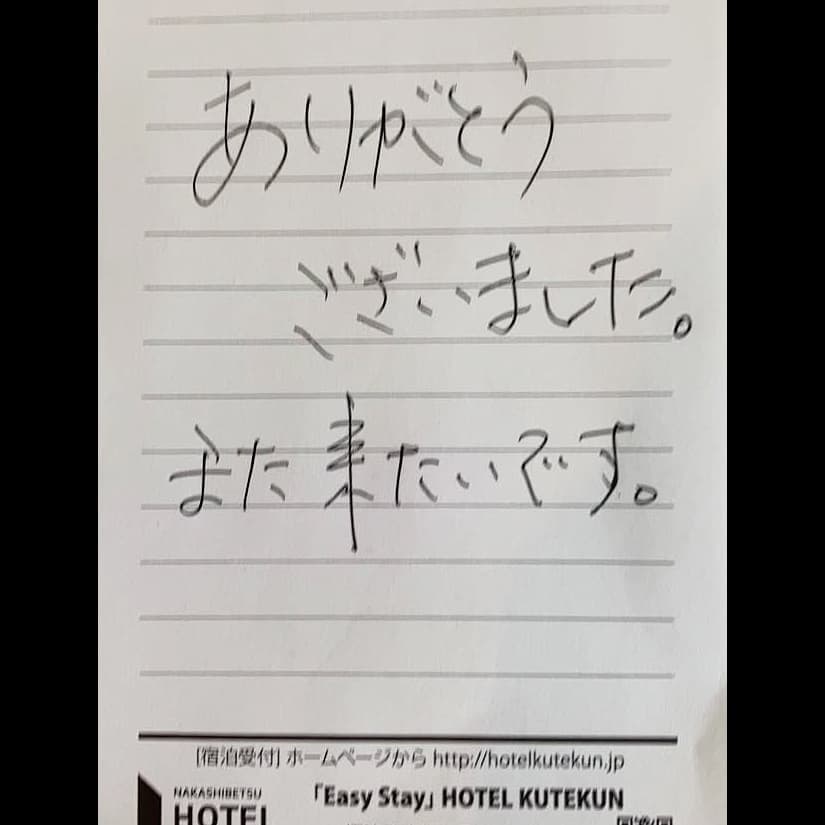 ありがとう
ございました。
また来たいです。
[宿泊受付] ホームページから http://hotelkutekun.jp
NAKASHIBETSU
HOTEL
「Easy Stay」 HOTEL KUTEKUN